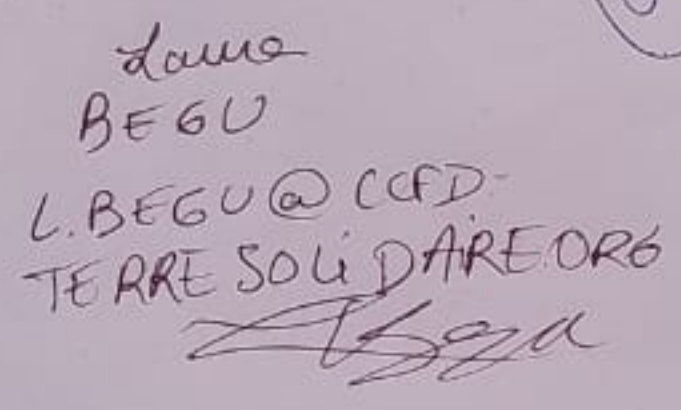 Laura
BEGU
L.BEGU@CCFD-
TERRESOLIDAIRE.ORG